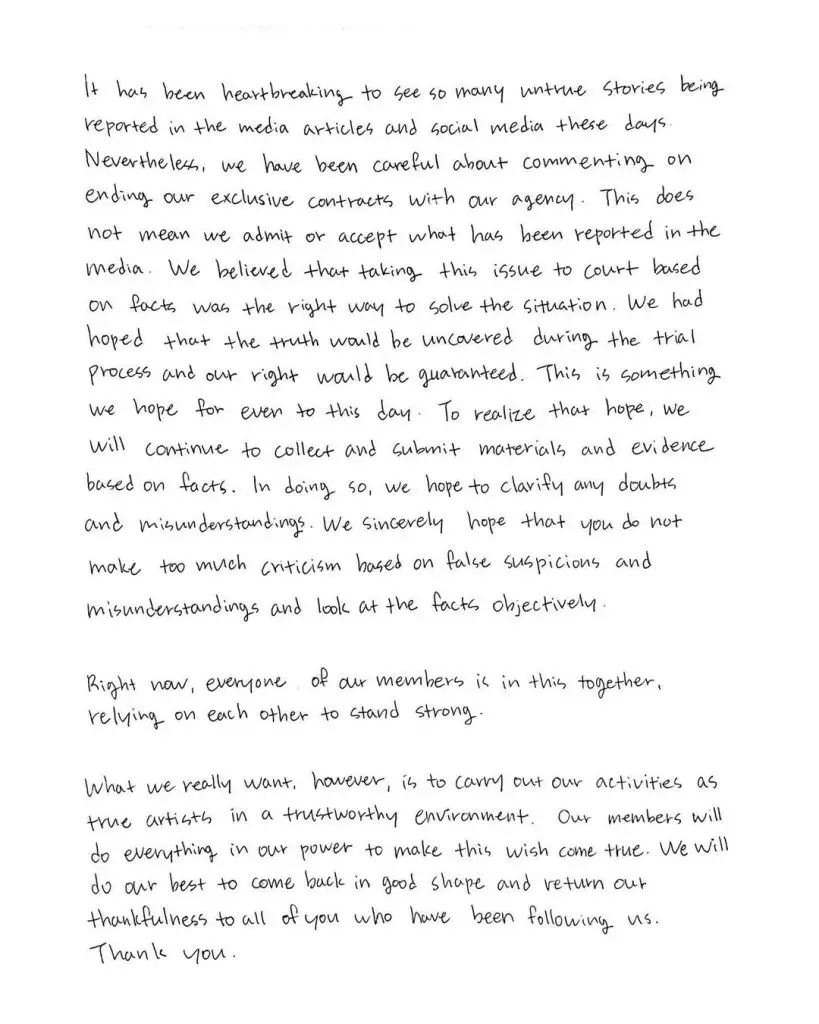 It has been heartbreaking to see so many untrue stories being
reported in the media articles and social media these days.
Nevertheless, we have been careful about commenting on
ending our exclusive contracts with our agency. This does
not mean we admit or accept what has been reported in the
media. We believed that taking this issue to court based
on facts was the right way to solve the situation. We had
hoped that the truth would be uncovered during the trial
process and our right would be guaranteed. This is something
we hope for even to this day. To realize that hope, we
will continue to collect and submit materials and evidence
based on facts. In doing so, we hope to clarify any doubts
and misunderstandings. We sincerely hope that you do not
make too much criticism based on false suspicions and
misunderstandings and look at the facts objectively.
Right now, everyone of our members is in this together,
relying on each other to stand strong.
What we really want, however, is to carry out our activities as
true artists in a trustworthy environment. Our members will
do everything in our power to make this wish come true. We will
do our best to come back in good shape and return our
thankfulness to all of you who have been following us.
Thank you.